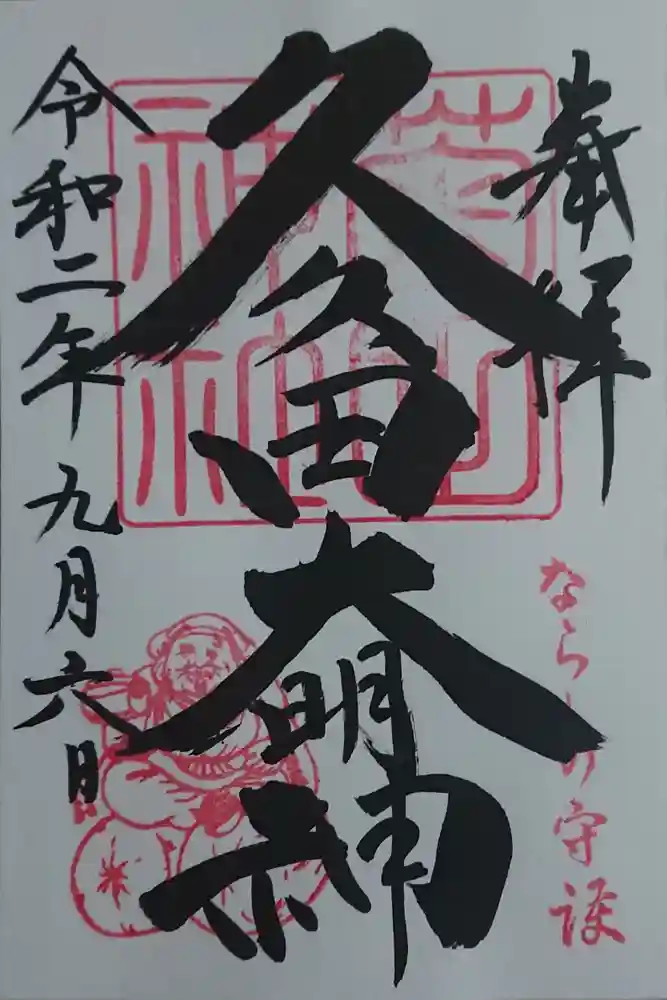 奉拝
ならしの守護
久久田大明神
令和二年九月六日